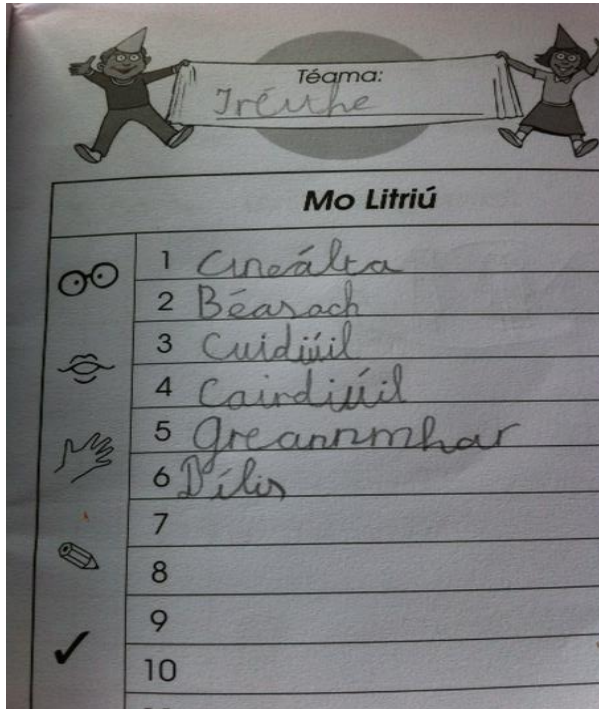 Téama:
Tréithe
Mo Litriú
1 Cineálta
2 Béasach
3 Cuidiúil
4 Cairdiúil
5 Greannmhar
6 Dílis
7
8
9
10